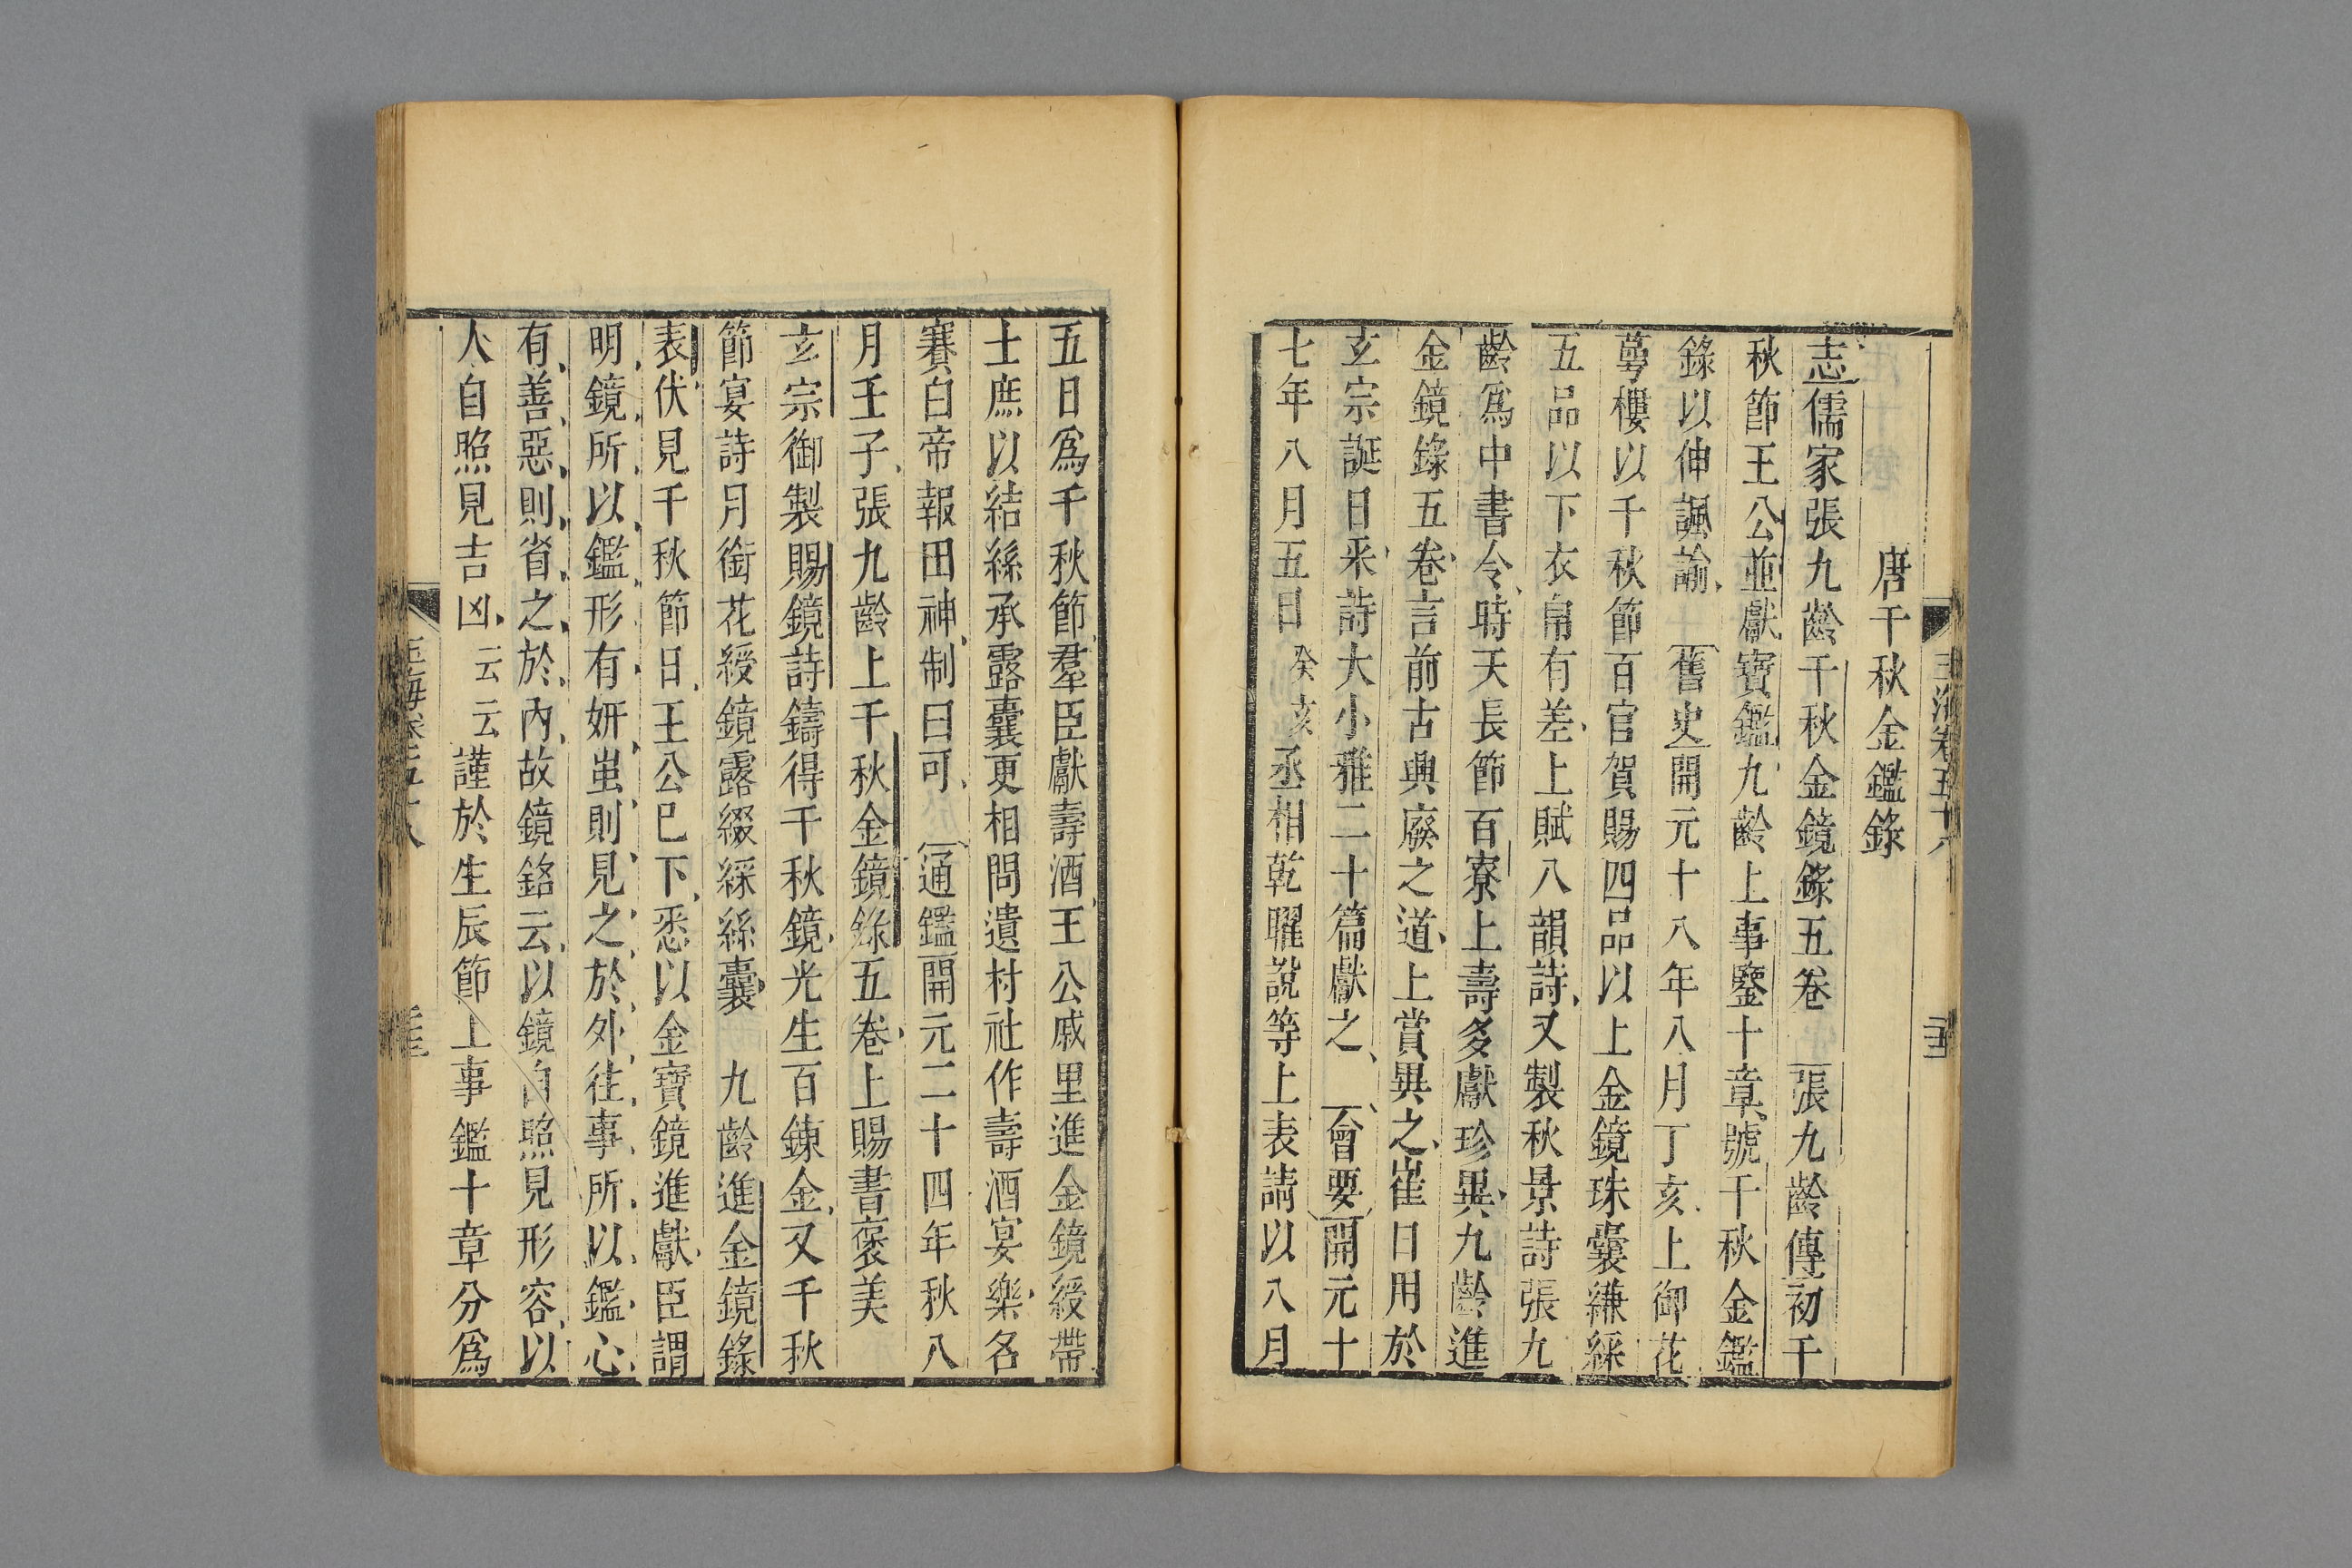 唐千秋金鑑錄
志儒家張九齡千秋金鏡錄五卷 張九齡傳初千
秋節王公並獻寶鑑九齡上事鑒十章號千秋金鑑
錄以伸諷諭 舊史開元十八年八月丁亥上御花
萼樓以千秋節百官賀賜四品以上金鏡珠囊縑綵
五品以下衣帛有差上賦八韻詩又製秋景詩張九
齡爲中書令時天長節百寮上壽多獻珍異九齡進
金鏡錄五卷言前古興廢之道上賞異之崔日用於
玄宗誕日采詩大小雅二十篇獻之 會要開元十
七年八月五日癸亥丞相乾曜說等上表請以八月
五日爲千秋節羣臣獻壽酒王公戚里進金鏡綬帶
士庶以結絲承露囊更相問遺村社作壽酒宴樂名
賽白帝報田神制曰可 通鑑開元二十四年秋八
月壬子張九齡上千秋金鏡錄五卷上賜書褒美
玄宗御製賜鏡詩鑄得千秋鏡光生百鍊金又千秋
節宴詩月銜花綬鏡露綴綵絲囊 九齡進金鏡錄
表伏見千秋節日王公巳下悉以金寶鏡進獻臣謂
明鏡所以鑑形有妍蚩則見之於外往事所以鑑心
有善惡則省之於內故鏡銘云以鏡自照見形容以
人自照見吉凶云云謹於生辰節上事鑑十章分爲